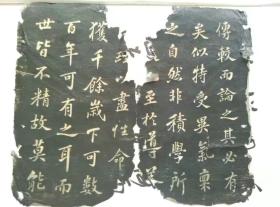 傳較而論之其必有
矣似特受異氣稟
之自然非積學所
至於導養
以盡性命
獲千餘歲下可數
百年可有之耳而
世皆不精故莫能